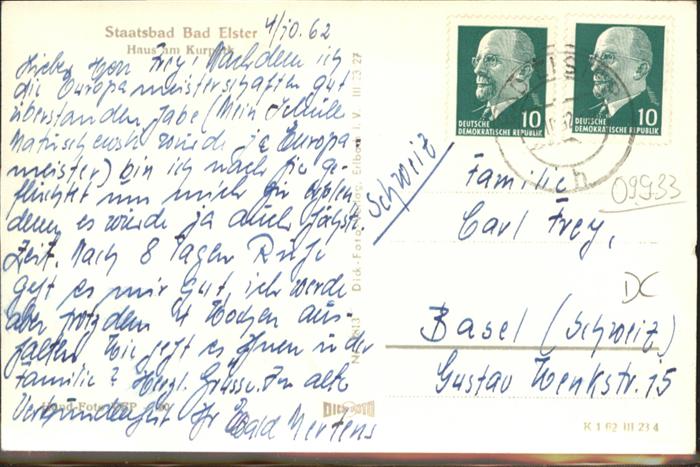 Staatsbad Bad Elster
Haus am Kurpark
4/10. 62
Lieber Herr Frey! Nachdem ich
die Europameisterschaften gut
überstanden habe (Mein Schüler
wurde ja Europa-
meister) bin ich nach hier ge-
flüchtet um mich zu erholen
denn es wurde ja auch höchste
Zeit. Nach 8 Tagen Ruhe
geht es mir gut, ich werde
aber trotzdem 4 Wochen aus-
halten. Wie geht es Ihnen in der
Familie? Herzl. Grüsse. In alter
Verbundenheit Ihr
Ewald Mertens
DEUTSCHE
DEMOKRATISCHE REPUBLIK
10
DEUTSCHE
DEMOKRATISCHE REPUBLIK
10
Schweiz
Familie
09933
Carl Frey,
DC
Basel (Schweiz)
Gustav Wenkstr. 15
DICK-FOTO
K 1 62 III 23 4